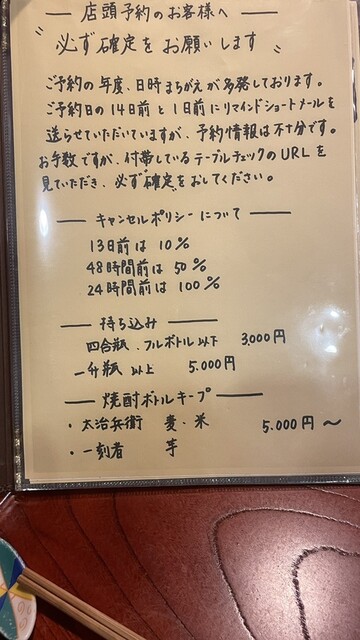 ― 店頭予約のお客様へ ―
〝必ず確定をお願いします〟
ご予約の年度、日時まちがえが多発しております。
ご予約日の14日前と1日前にリマインドショートメールを
送らせていただいていますが、予約情報は不十分です。
お手数ですが、付帯しているテーブルチェックのURLを
見ていただき、必ず"確定"をおしてください。
― キャンセルポリシーについて ―
13日前は 10%
48時間前は 50%
24時間前は 100%
― 持ち込み ―
四合瓶、フルボトル以下 3,000円
一升瓶以上 5,000円
― 焼酎ボトルキープ ―
・太治兵衛 麦・米 5,000円~
・一刻者 芋